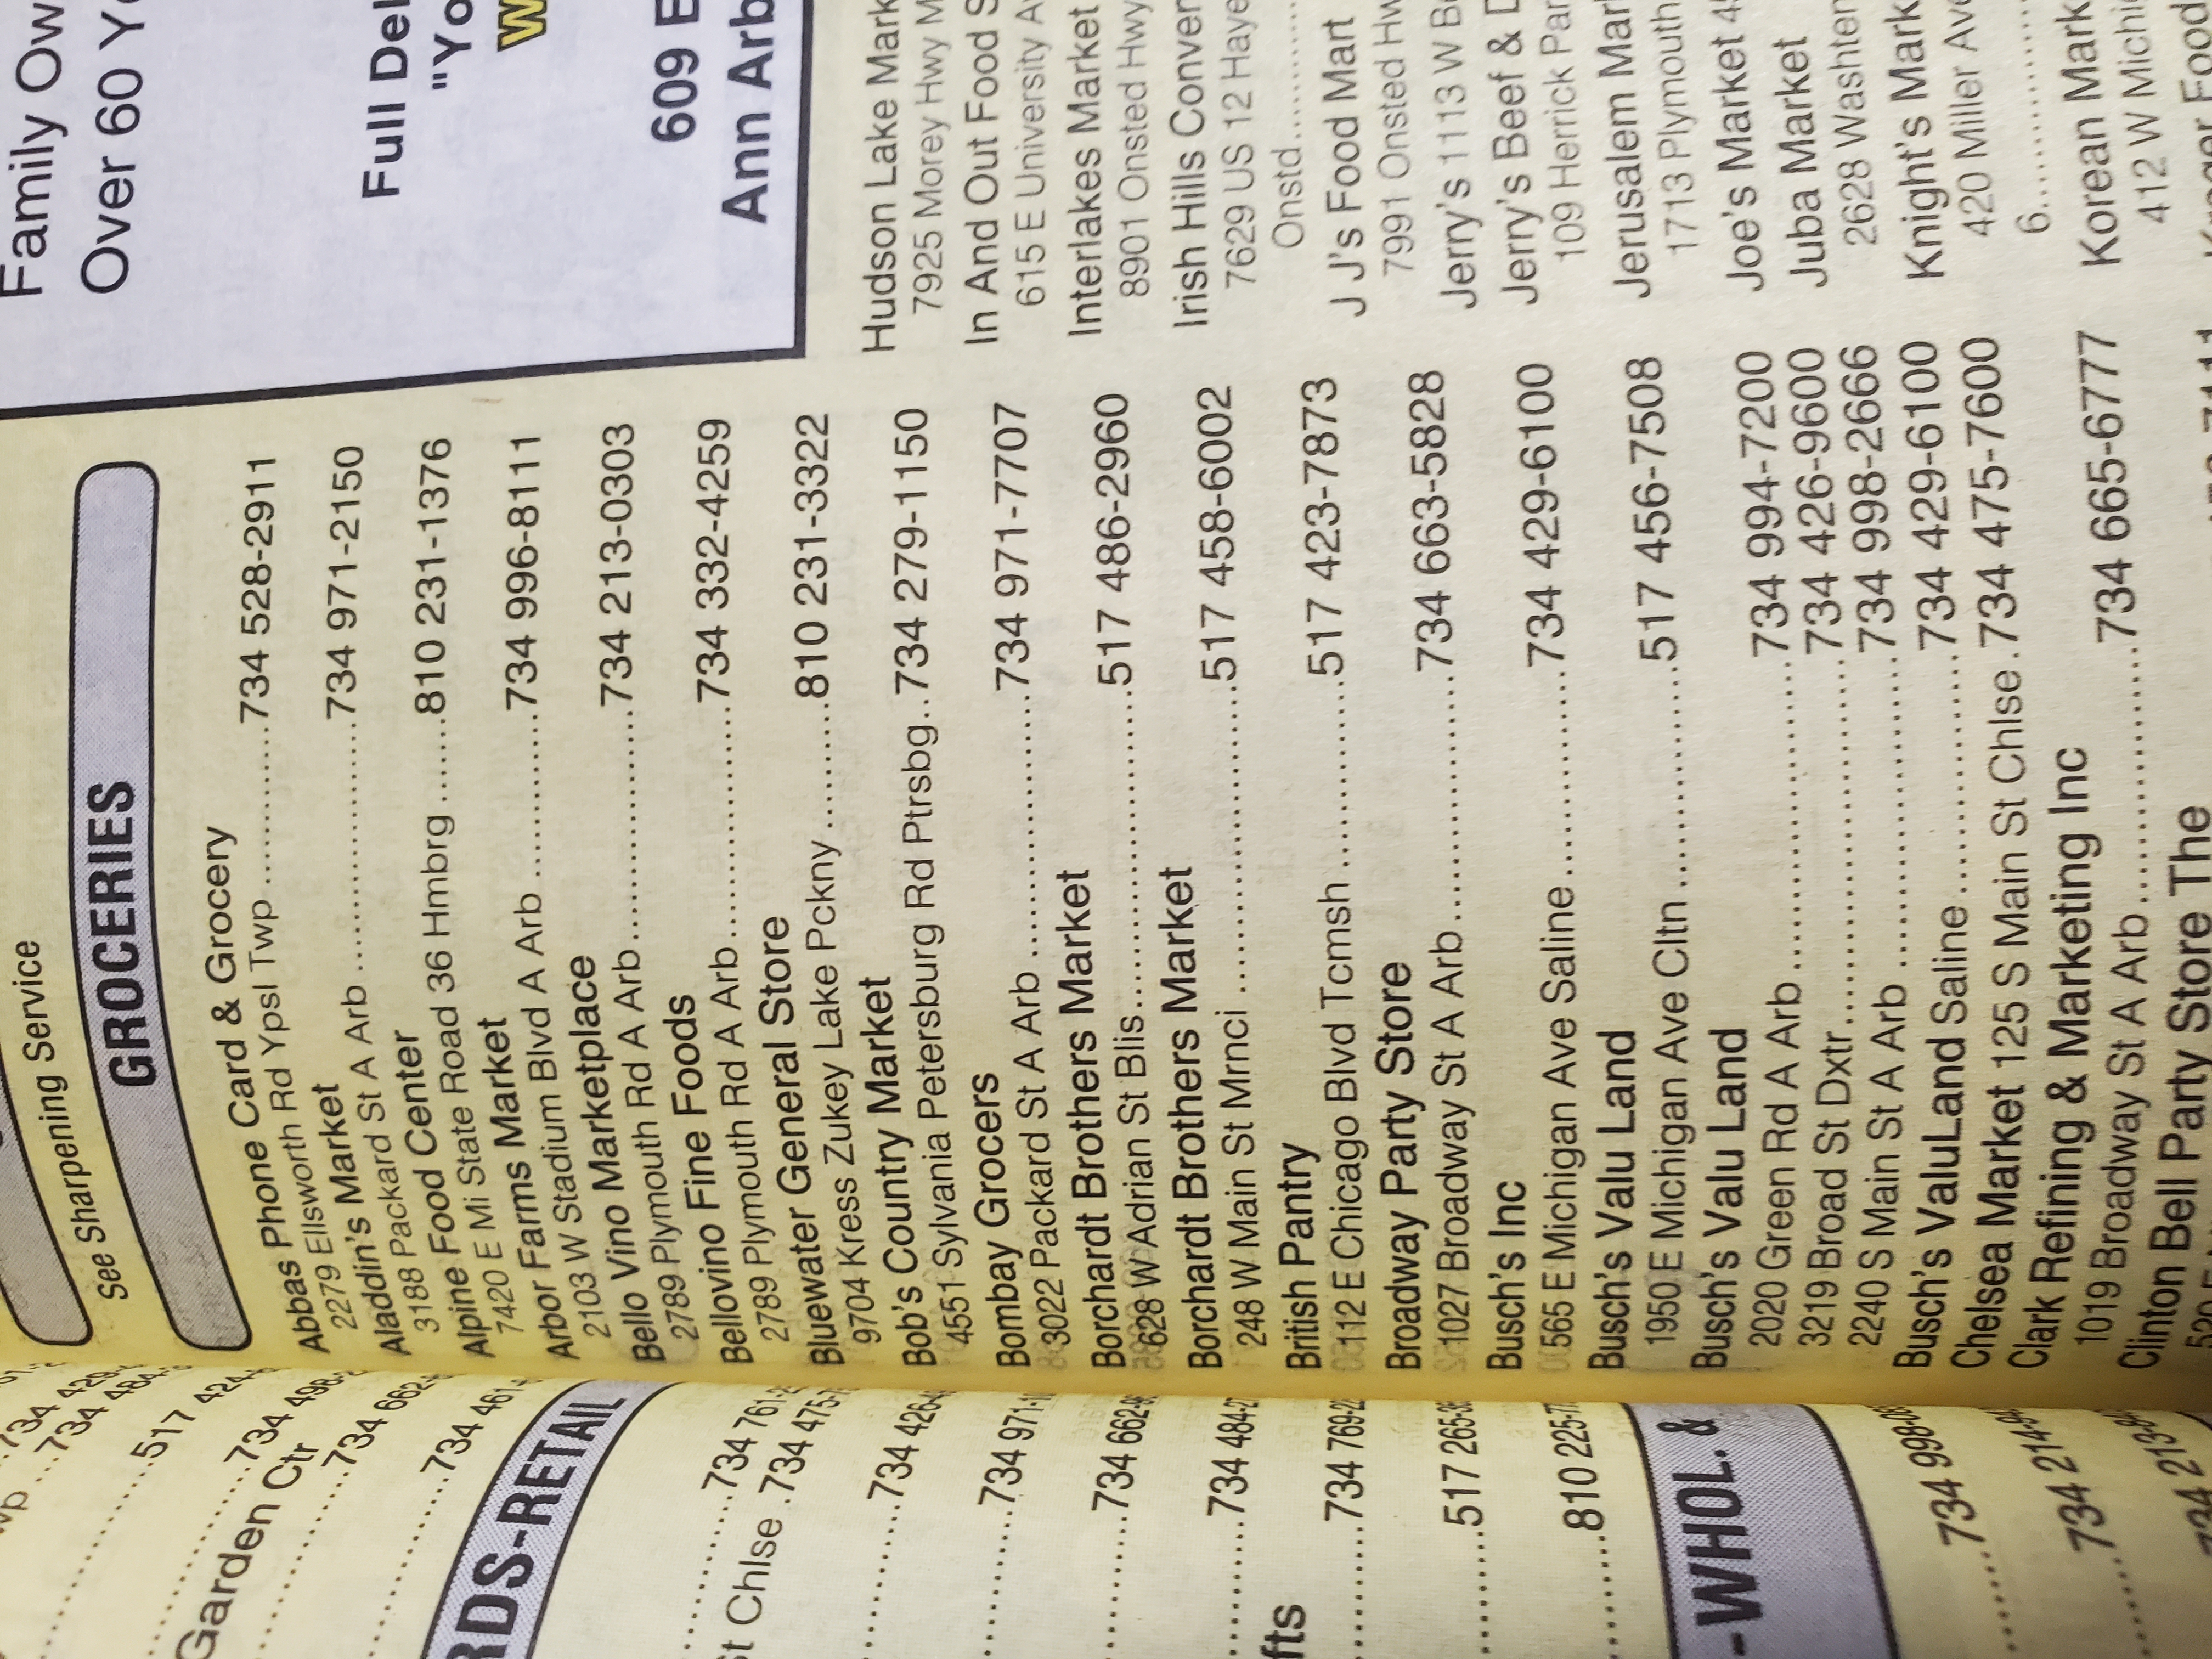 734 429-
734 484-
517 424-
734 498-
Garden Ctr
734 662-
734 461-
RDS-RETAIL
734 761-2
St Chlse .734 475-7
734 426-
734 971-1
734 662-
734 484-2
fts
734 769-2
517 265-
810 225-7
-WHOL. &
734 998-0
734 214-9
734 213-8
See Sharpening Service
GROCERIES
Abbas Phone Card & Grocery
2279 Ellsworth Rd Ypsl Twp............734 528-2911
Aladdin's Market
3188 Packard St A Arb....................734 971-2150
Alpine Food Center
7420 E Mi State Road 36 Hmbrg.......810 231-1376
Arbor Farms Market
2103 W Stadium Blvd A Arb.............734 996-8111
Bello Vino Marketplace
2789 Plymouth Rd A Arb..................734 213-0303
Bellovino Fine Foods
2789 Plymouth Rd A Arb..................734 332-4259
Bluewater General Store
9704 Kress Zukey Lake Pckny..........810 231-3322
Bob's Country Market
4551 Sylvania Petersburg Rd Ptrsbg..734 279-1150
Bombay Grocers
3022 Packard St A Arb....................734 971-7707
Borchardt Brothers Market
628 W Adrian St Blis........................517 486-2960
Borchardt Brothers Market
248 W Main St Mrnci.......................517 458-6002
British Pantry
112 E Chicago Blvd Tcmsh...............517 423-7873
Broadway Party Store
1027 Broadway St A Arb..................734 663-5828
Busch's Inc
565 E Michigan Ave Saline...............734 429-6100
Busch's Valu Land
1950 E Michigan Ave Cltn................517 456-7508
Busch's Valu Land
2020 Green Rd A Arb.......................734 994-7200
3219 Broad St Dxtr..........................734 426-9600
2240 S Main St A Arb......................734 998-2666
Busch's ValuLand Saline.................734 429-6100
Chelsea Market 125 S Main St Chlse.734 475-7600
Clark Refining & Marketing Inc
1019 Broadway St A Arb..................734 665-6777
Clinton Bell Party Store The
Family Ow
Over 60 Y
Full Del
"Yo
W
609 E
Ann Arb
Hudson Lake Mark
7925 Morey Hwy M
In And Out Food S
615 E University A
Interlakes Market
8901 Onsted Hwy
Irish Hills Conver
7629 US 12 Haye
Onstd............
J J's Food Mart
7991 Onsted Hw
Jerry's 1113 W B
Jerry's Beef & D
109 Herrick Par
Jerusalem Mar
1713 Plymouth
Joe's Market 4
Juba Market
2628 Washten
Knight's Mark
420 Miller Ave
6............
Korean Mark
412 W Michi
Kroger Food